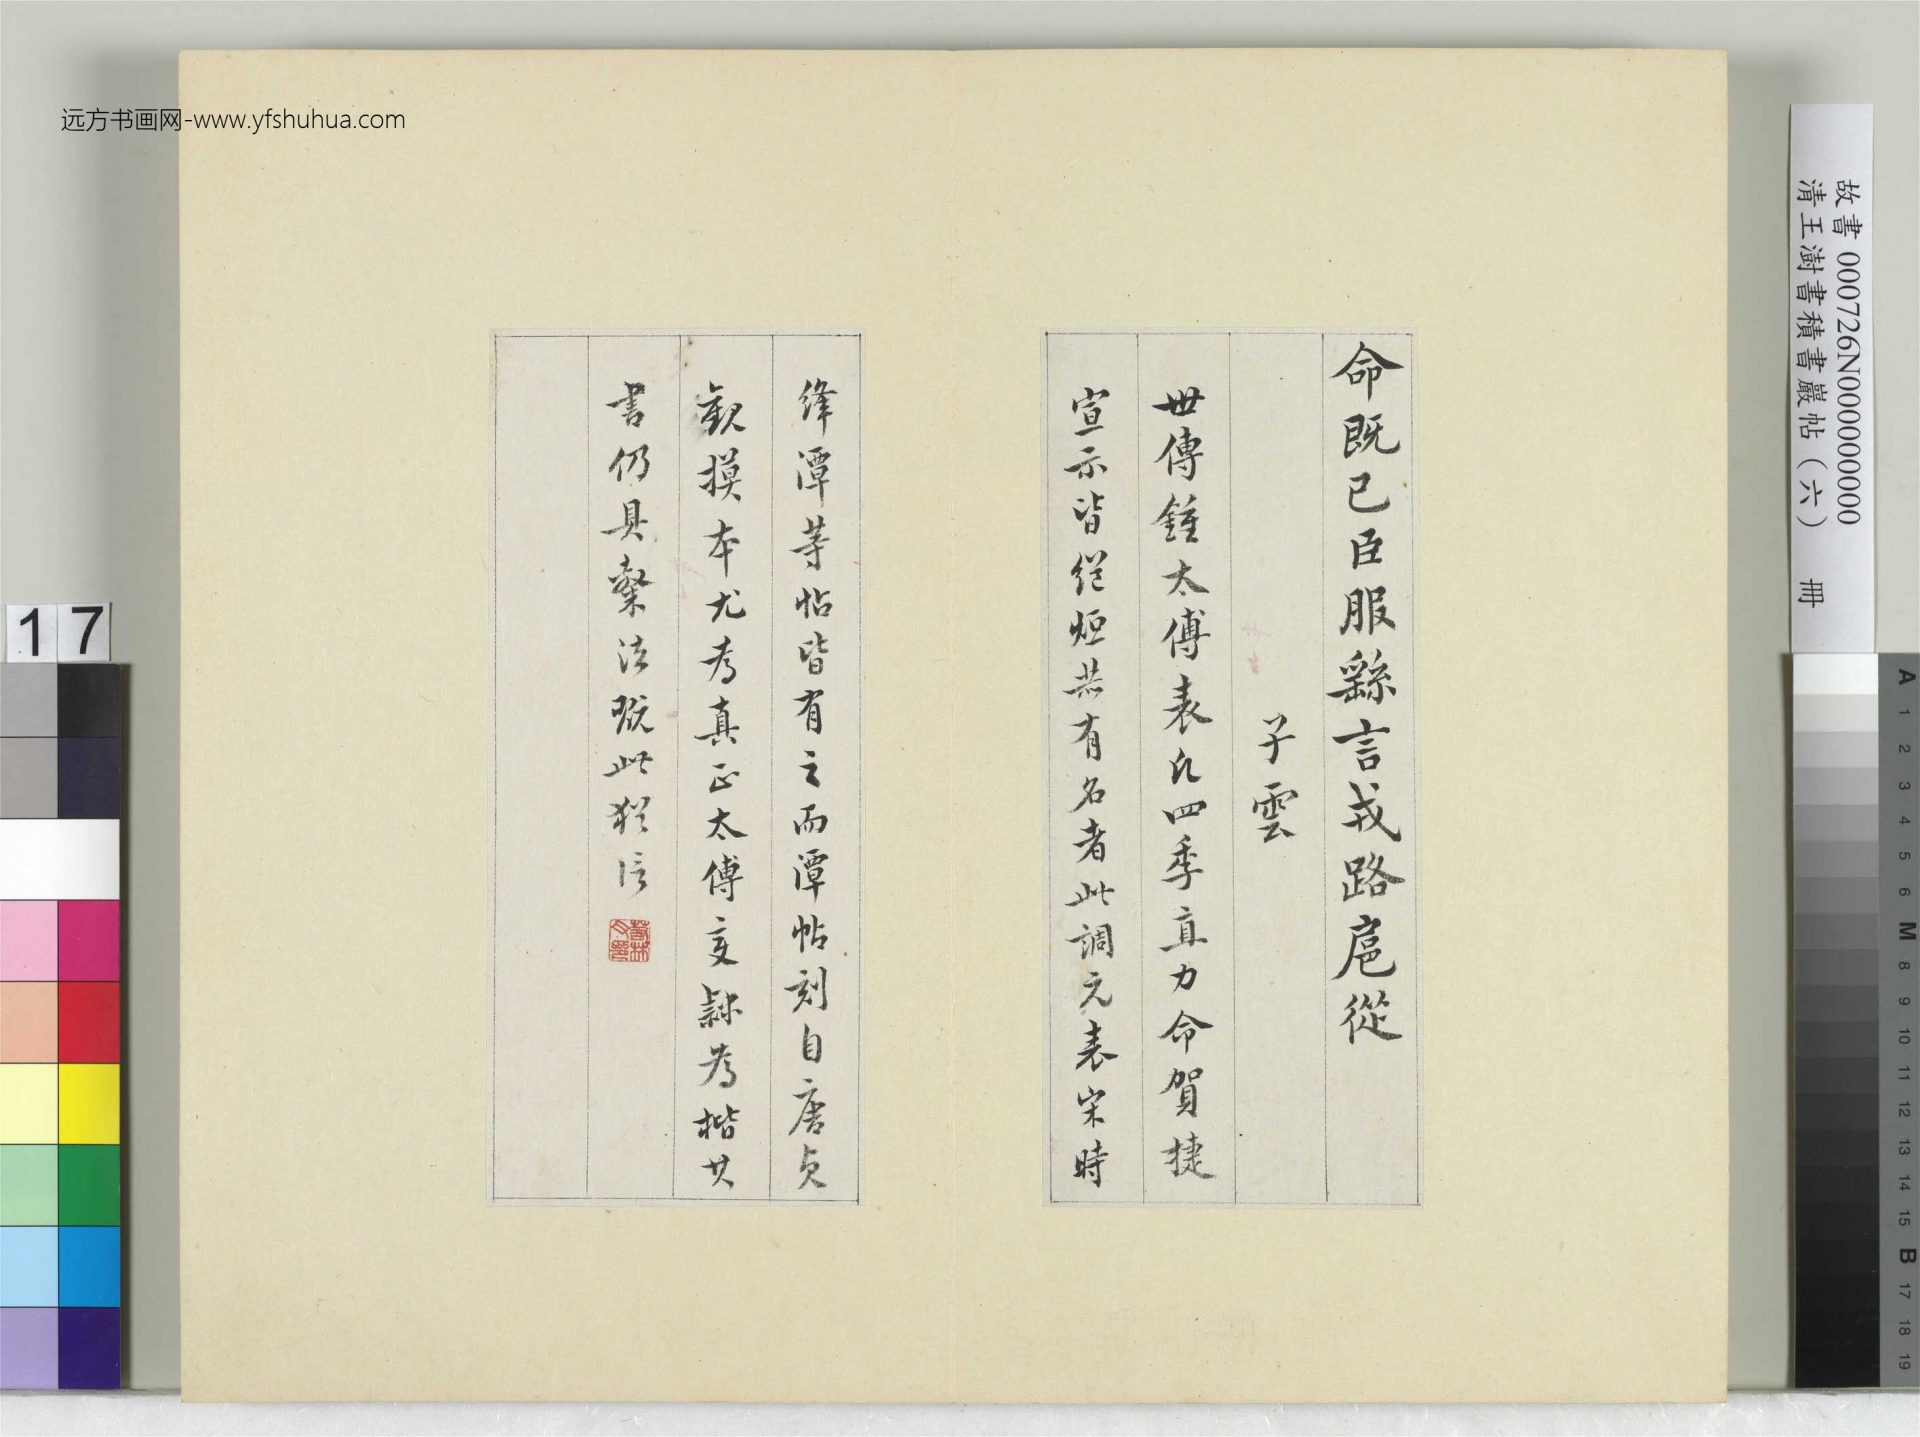 命既已臣服繇言戎路扈從
子雲
世傳鍾太傅表凡四季直力命賀捷
宣示皆絕烜共有名者此調元表宋時
絳潭等帖皆有之而潭帖刻自唐貞
觀摸本尤為真正太傅變隸為楷其
書仍具隸法既此猶信
远方书画网-www.yfshuhua.com
故書 000726N000000000
清王澍書積書巖帖(六) 冊
17
A 1 2 3 4 5 6 M 8 9 10 11 12 13 14 15 B 17 18 19